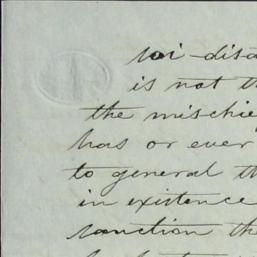 soi-disa
is not th
the mischie
has or ever
to general th
in existence
sanction the